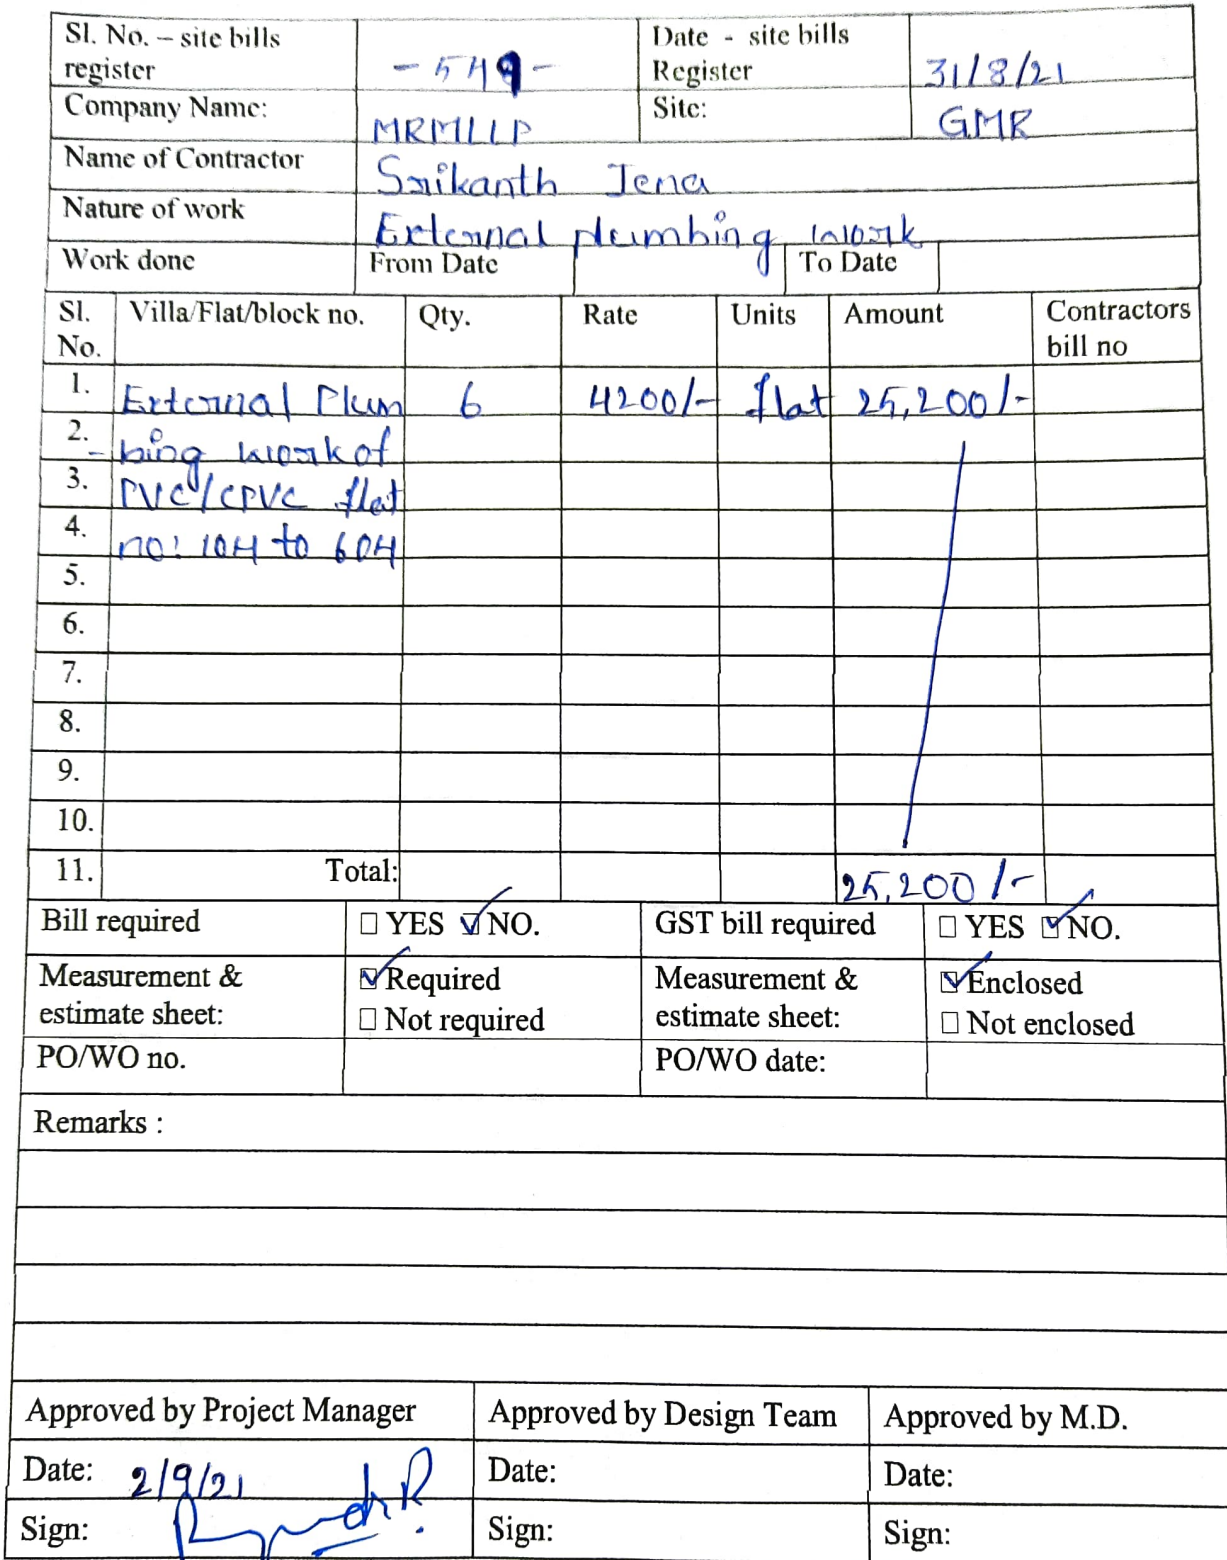 Sl. No. – site bills register -549- Date - site bills Register 31/8/21
Company Name: MRMLLP Site: GMR
Name of Contractor Srikanth Jena
Nature of work External plumbing work
Work done From Date To Date
Sl. No. Villa/Flat/block no. Qty. Rate Units Amount Contractors bill no
1. External Plum 6 4200/- flat 25,200/-
2. -bing work of
3. PVC/CPVC flat
4. no: 104 to 604
5.
6.
7.
8.
9.
10.
11. Total: 25,200/-
Bill required ☐ YES ☑ NO. GST bill required ☐ YES ☑ NO.
Measurement & estimate sheet: ☑ Required Measurement & estimate sheet: ☑ Enclosed
☐ Not required ☐ Not enclosed
PO/WO no. PO/WO date:
Remarks :
Approved by Project Manager Approved by Design Team Approved by M.D.
Date: 2/9/21 Date: Date:
Sign: Sign: Sign: